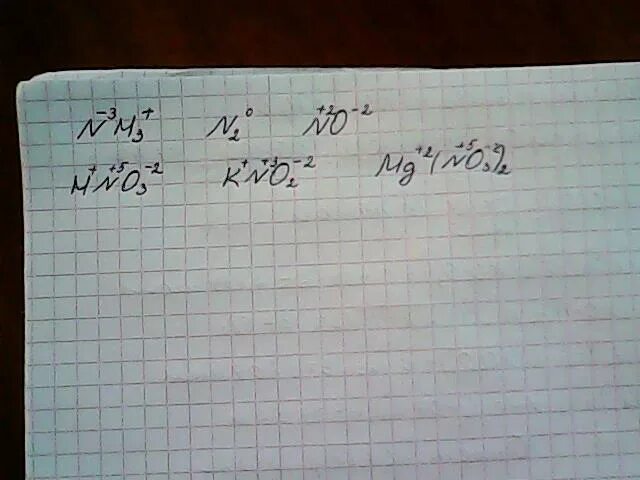 N⁻³H₃⁺ N₂⁰ N⁺²O⁻²
H⁺N⁺⁵O₃⁻² K⁺N⁺³O₂⁻² Mg⁺²(N⁺⁵O₃⁻²)₂